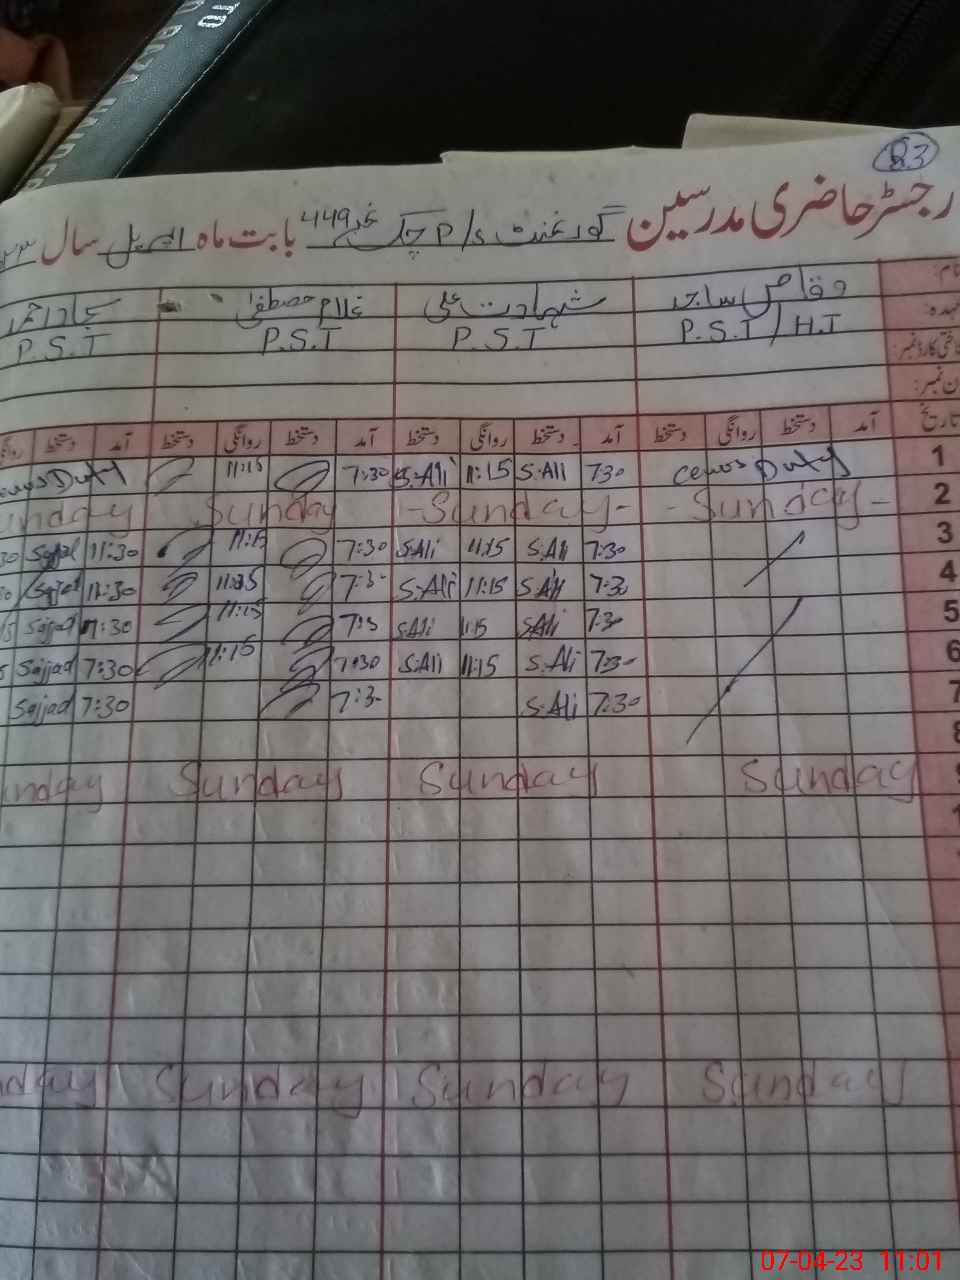 TO
83
رجسٹر حاضری مدرسین گورنمنٹ P/S چک نمبر 449 بابت ماہ اپریل سال
نام: وقاص ساجد شہادت علی غلام مصطفیٰ سجاد احمد
عہدہ: P.S.T / H.T P.S.T P.S.T P.S.T
شناختی کارڈ نمبر:
فون نمبر:
تاریخ آمد دستخط روانگی دستخط آمد دستخط روانگی دستخط آمد دستخط روانگی دستخط آمد دستخط
1 Duty 7:30 S.Ali 11:15 S.Ali 7:30 11:15 Duty
2 Sunday Sunday Sunday Sunday
3 7:30 S.Ali 11:15 S.Ali 7:30 11:15 11:30 Sajjad
4 7:30 S.Ali 11:15 S.Ali 7:3- 11:30 Sajjad
5 7:30 S.Ali 11:15 S.Ali 7:3 11:15 Sajjad
6 7:30 S.Ali 11:15 S.Ali 7:30 11:15 7:30 Sajjad
7 7:30 S.Ali 7:3- 7:30 Sajjad
8
9 Sunday Sunday Sunday Sunday
Sunday Sunday Sunday
07-04-23 11:01